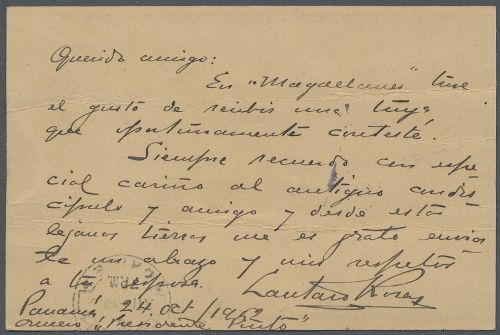 Querido amigo:
En "Magallanes" tuve
el gusto de recibir una tuya
que oportunamente contesté.
Siempre recuerdo con espe
cial cariño al antiguo condis
cípulo y amigo y desde estas
lejanas tierras me es grato enviar
te un abrazo y mis respetos
a tu esposa. Lautaro Rosas
Panamá 24 oct/19
Crucero "Presidente Pinto"